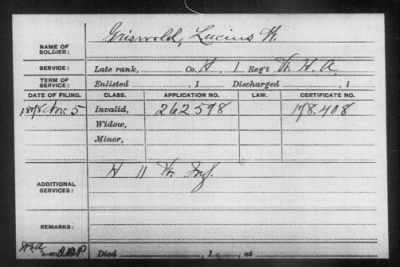 NAME OF SOLDIER: Griswold, Lucius H.
SERVICE: Late rank, Co. H, 1 Reg't Vt. H. A.
TERM OF SERVICE: Enlisted , 1 Discharged , 1
DATE OF FILING. CLASS. APPLICATION NO. LAW. CERTIFICATE NO.
1878 Nov. 5 Invalid, 262598 178.408
Widow,
Minor,
ADDITIONAL SERVICES: H 11 Vt. Inf.
REMARKS:
Died , 1 , at